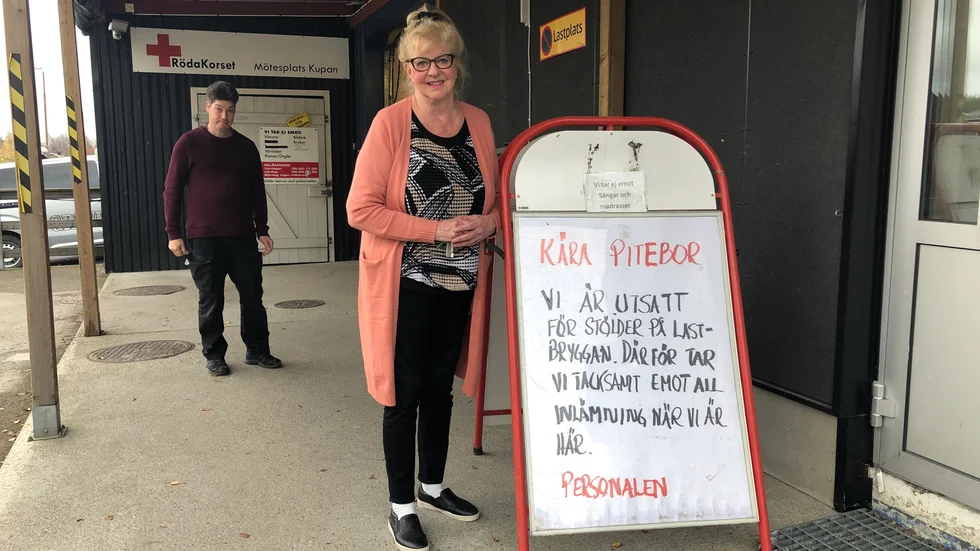 RödaKorset Mötesplats Kupan
Lastplats
VI TAR EMOT:
Vi tar ej emot
Sängar och
madrasser
KÄRA PITEBOR
VI ÄR UTSATT
FÖR STÖLDER PÅ LAST-
BRYGGAN. DÄRFÖR TAR
VI TACKSAMT EMOT ALL
INLÄMNING NÄR VI ÄR
HÄR.
PERSONALEN